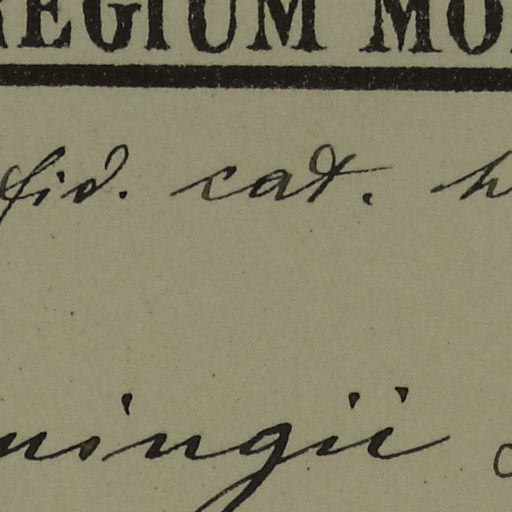 REGIUM MO
fid. cat. h
mingii